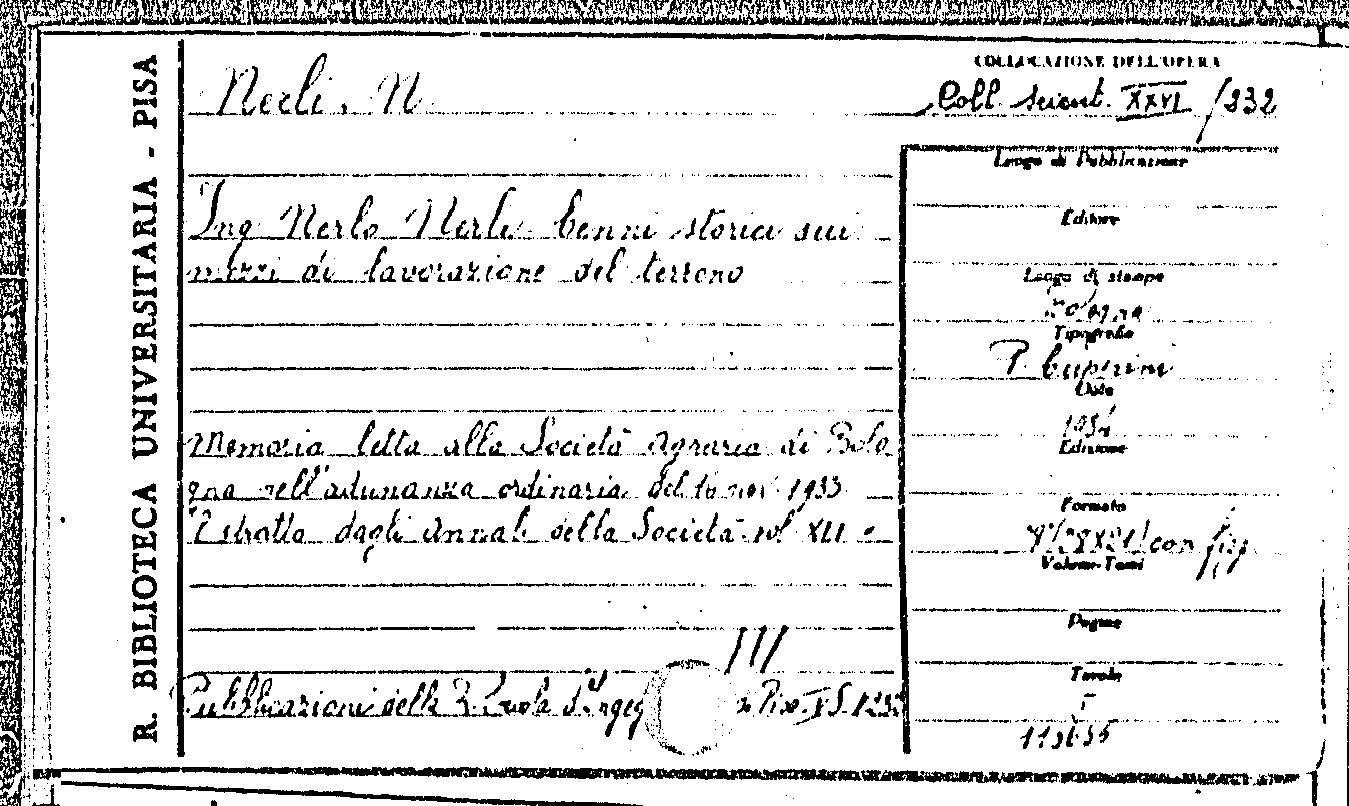 R. BIBLIOTECA UNIVERSITARIA - PISA
Nerli. N.
COLLOCAZIONE DELL'OPERA
Coll. scient. XXVI /232
Ing Nerlo Nerli. Cenni storici sui
mezzi di lavorazione del terreno
Memoria letta alla Società Agraria di Bolo
gna nell'adunanza ordinaria del 16 nov. 1933
Estratto dagli Annali della Società. vol XLI
Pubblicazioni della R. Scuola d'Ingeg di Pisa
Luogo di Pubblicazione
Editore
Luogo di stampa
Bologna
Tipografia
P. Cuperini
Data
1934
Edizione
Formato
con fig
Volumi-Tomi
Pagine
Tavole